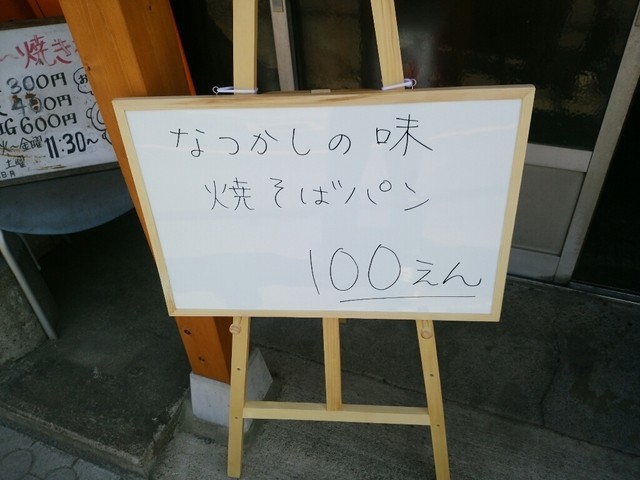 なつかしの味
焼そばパン
100えん
焼き
300円
400円
600円
火~金曜
11:30~
土曜